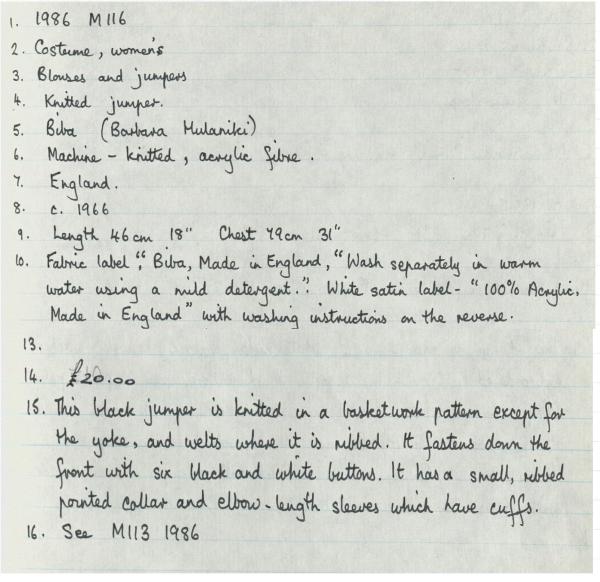 1. 1986 M116
2. Costume, women's
3. Blouses and jumpers
4. Knitted jumper.
5. Biba (Barbara Hulaniki)
6. Machine - knitted, acrylic fibre.
7. England.
8. c. 1966
9. Length 46cm 18" Chest 79cm 31"
10. Fabric label ", Biba, Made in England, "Wash separately in warm
water using a mild detergent.". White satin label - "100% Acrylic,
Made in England" with washing instructions on the reverse.
13.
14. £20.00
15. This black jumper is knitted in a basketwork pattern except for
the yoke, and welts where it is ribbed. It fastens down the
front with six black and white buttons. It has a small, ribbed
pointed collar and elbow-length sleeves which have cuffs.
16. See M113 1986